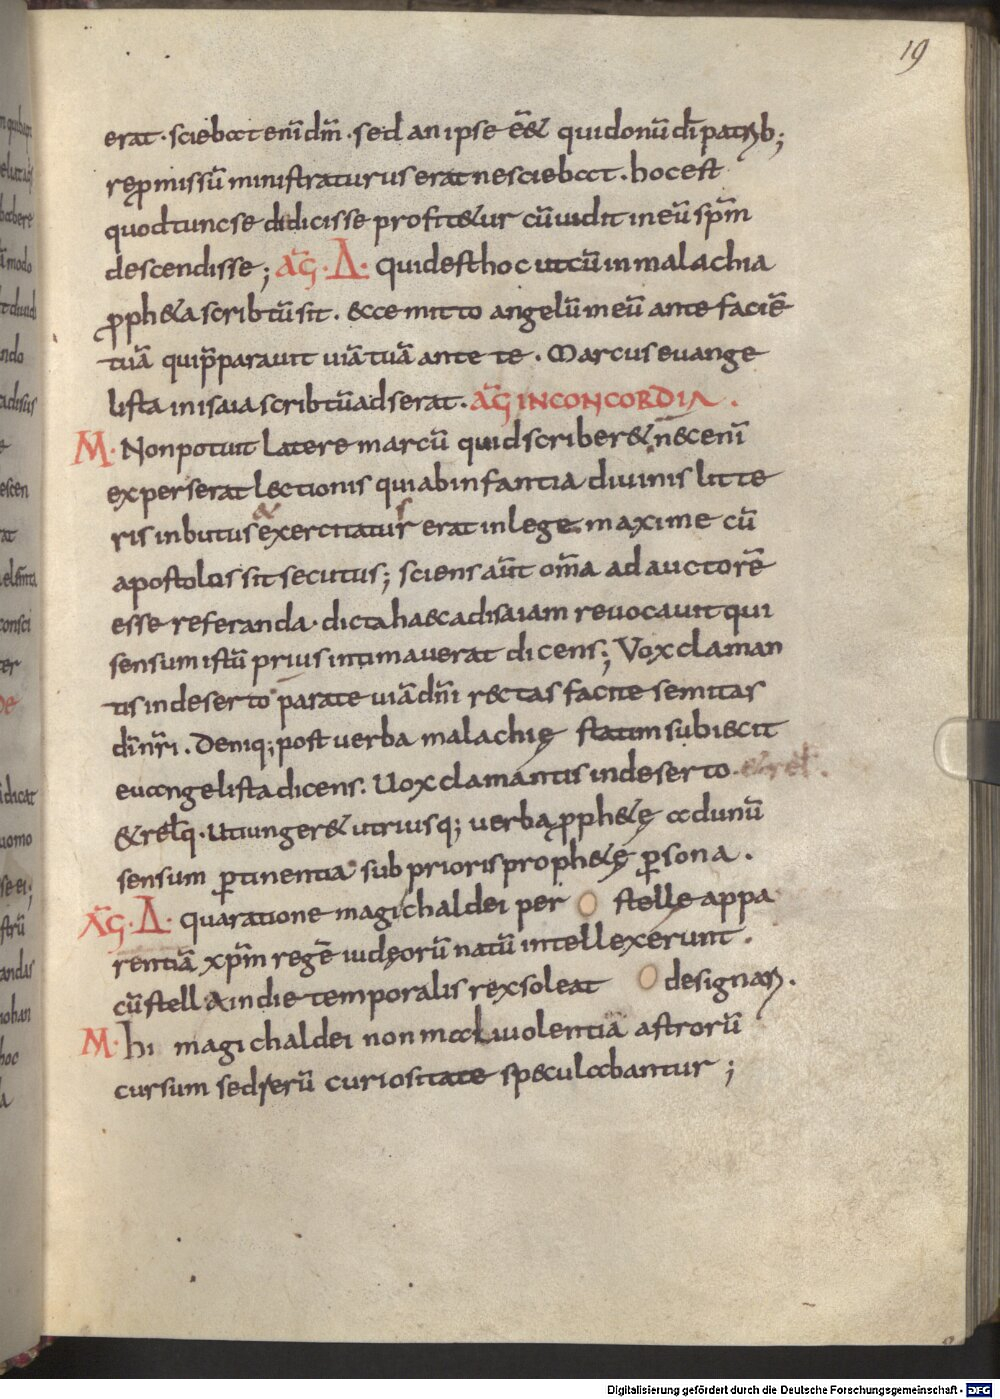 19
erat · sciebat eni᷃ dn᷃m · sed an ipse e᷃ & qui donu᷃ di᷃ patrib;
repromissu᷃ ministraturus erat nesciebat · hoc est
quod tunc se didicisse profit&ur cu᷃ uidit in eu᷃ sp᷃m
descendisse ; AG᷃ · Δ · quid est hoc ut cu᷃ in malachia
proph&a scribtu᷃ sit · ecce mitto angelu᷃ meu᷃ ante facie᷃
tua᷃ qui p᷃parauit uia᷃ tua᷃ ante te · Marcus euange
lista in isaia scribtu᷃ adserat · AG᷃ IN CONCORDIA .
M · Non potuit latere marcu᷃ quid scriber& n&c eni᷃
expers erat lectionis qui ab infantia diuinis litte
ris inbutus & exercitatus erat in lege maxime cu᷃
apostolos sit secutus ; sciens au᷃t om᷃a ad auctore᷃
esse referanda · dicta haec ad isaiam reuocauit qui
sensum istu᷃ prius intimauerat dicens ; Vox claman
tis in deserto parate uia᷃ dn᷃i rectas facite semitas
di᷃ nr᷃i . Deniq; post uerba malachię statim subiecit
euangelista dicens : Uox clamantis in deserto · & rel᷃ .
& rel᷃q · Ut iunger& utriusq; uerba proph&ę ad unu᷃
sensum pertinentia sub prioris proph&ę persona .
AG᷃ · Δ · qua ratione magi chaldei per stelle appa
rentia᷃ xp᷃m rege᷃ iudeoru᷃ natu᷃ intellexerunt .
cu᷃ stella indie temporalis rex soleat designari .
M · hi magi chaldei non maliuolentia᷃ astroru᷃
cursum sed reru᷃ curiositate speculabantur ;
Digitalisierung gefördert durch die Deutsche Forschungsgemeinschaft - DFG